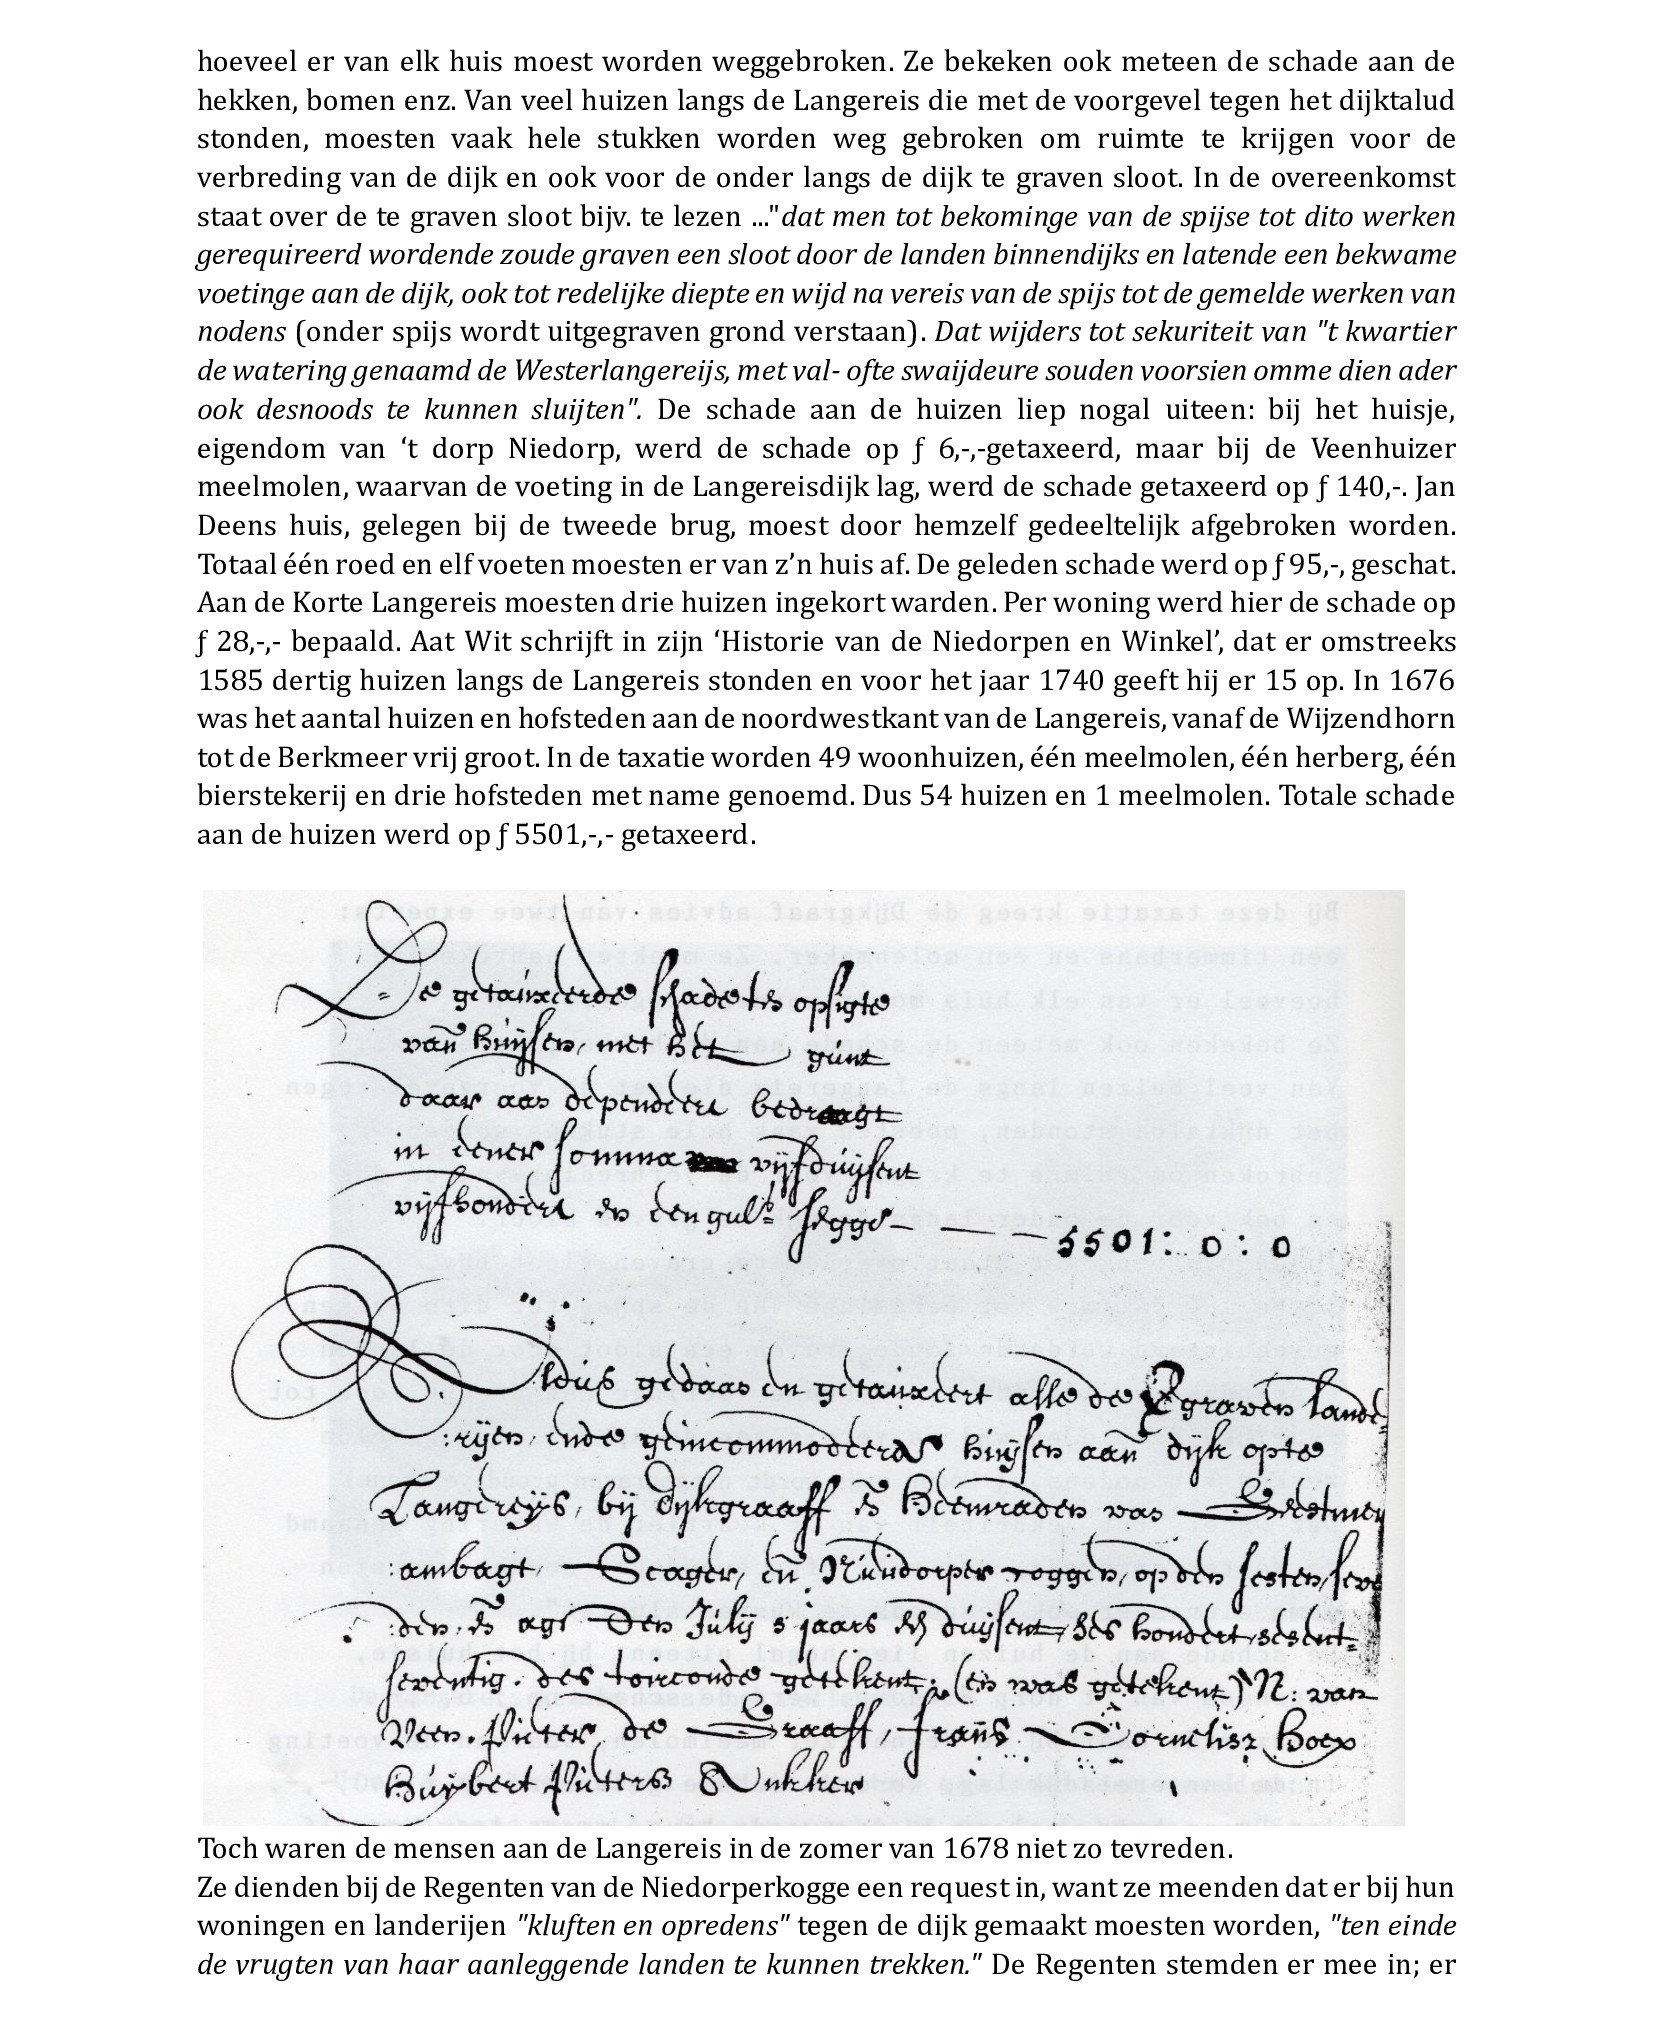 hoeveel er van elk huis moest worden weggebroken. Ze bekeken ook meteen de schade aan de
hekken, bomen enz. Van veel huizen langs de Langereis die met de voorgevel tegen het dijktalud
stonden, moesten vaak hele stukken worden weg gebroken om ruimte te krijgen voor de
verbreding van de dijk en ook voor de onder langs de dijk te graven sloot. In de overeenkomst
staat over de te graven sloot bijv. te lezen ..."dat men tot bekominge van de spijse tot dito werken
gerequireerd wordende zoude graven een sloot door de landen binnendijks en latende een bekwame
voetinge aan de dijk, ook tot redelijke diepte en wijd na vereis van de spijs tot de gemelde werken van
nodens (onder spijs wordt uitgegraven grond verstaan). Dat wijders tot sekuriteit van "t kwartier
de watering genaamd de Westerlangereijs, met val- ofte swaijdeure souden voorsien omme dien ader
ook desnoods te kunnen sluijten". De schade aan de huizen liep nogal uiteen: bij het huisje,
eigendom van ‘t dorp Niedorp, werd de schade op ƒ 6,-,-getaxeerd, maar bij de Veenhuizer
meelmolen, waarvan de voeting in de Langereisdijk lag, werd de schade getaxeerd op ƒ 140,-. Jan
Deens huis, gelegen bij de tweede brug, moest door hemzelf gedeeltelijk afgebroken worden.
Totaal één roed en elf voeten moesten er van z’n huis af. De geleden schade werd op ƒ 95,-, geschat.
Aan de Korte Langereis moesten drie huizen ingekort warden. Per woning werd hier de schade op
ƒ 28,-,- bepaald. Aat Wit schrijft in zijn ‘Historie van de Niedorpen en Winkel’, dat er omstreeks
1585 dertig huizen langs de Langereis stonden en voor het jaar 1740 geeft hij er 15 op. In 1676
was het aantal huizen en hofsteden aan de noordwestkant van de Langereis, vanaf de Wijzendhorn
tot de Berkmeer vrij groot. In de taxatie worden 49 woonhuizen, één meelmolen, één herberg, één
bierstekerij en drie hofsteden met name genoemd. Dus 54 huizen en 1 meelmolen. Totale schade
aan de huizen werd op ƒ 5501,-,- getaxeerd.
De getauxeerde schade ten opsigte
van huijsen, met het gunt
daar aan dependeert bedraagt
in eener somma vijfduijsent
vijfhondert en een gul: segge - - - 5501: 0 : 0
Aldus gedaan en getauxeert alle de graven lande
:rijen, ende geincommodeerde huijsen aan dijk opte
Langereijs, bij dijkgraaff en Heemraden van Geestmer
:ambagt, Scager, en Niudorper coggen, op den sesten, seve
:den, en agt Den Julij s jaars duijsent, ses hondert, sesent
seventig. des toirconde getekent; (en was getekent) N: van
Veen. Pieter de Graaff, frans Cornelisz Boex
Huijbert Pieters
Toch waren de mensen aan de Langereis in de zomer van 1678 niet zo tevreden.
Ze dienden bij de Regenten van de Niedorperkogge een request in, want ze meenden dat er bij hun
woningen en landerijen "kluften en opredens" tegen de dijk gemaakt moesten worden, "ten einde
de vrugten van haar aanleggende landen te kunnen trekken." De Regenten stemden er mee in; er